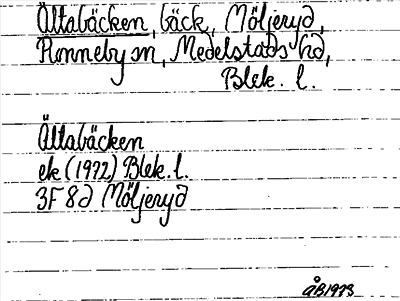 Ältabäcken, bäck, Möljeryd,
Ronneby sn, Medelstads hd,
Blek. l.
Ältabäcken
ek (1972) Blek. l.
3F 8d Möljeryd
ÅB 1973